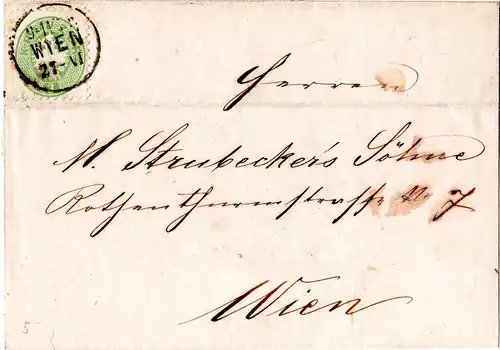 WIEN
Herren
M. Strubecker's Söhne
Rothenthurmstrasse No 7
Wien
5